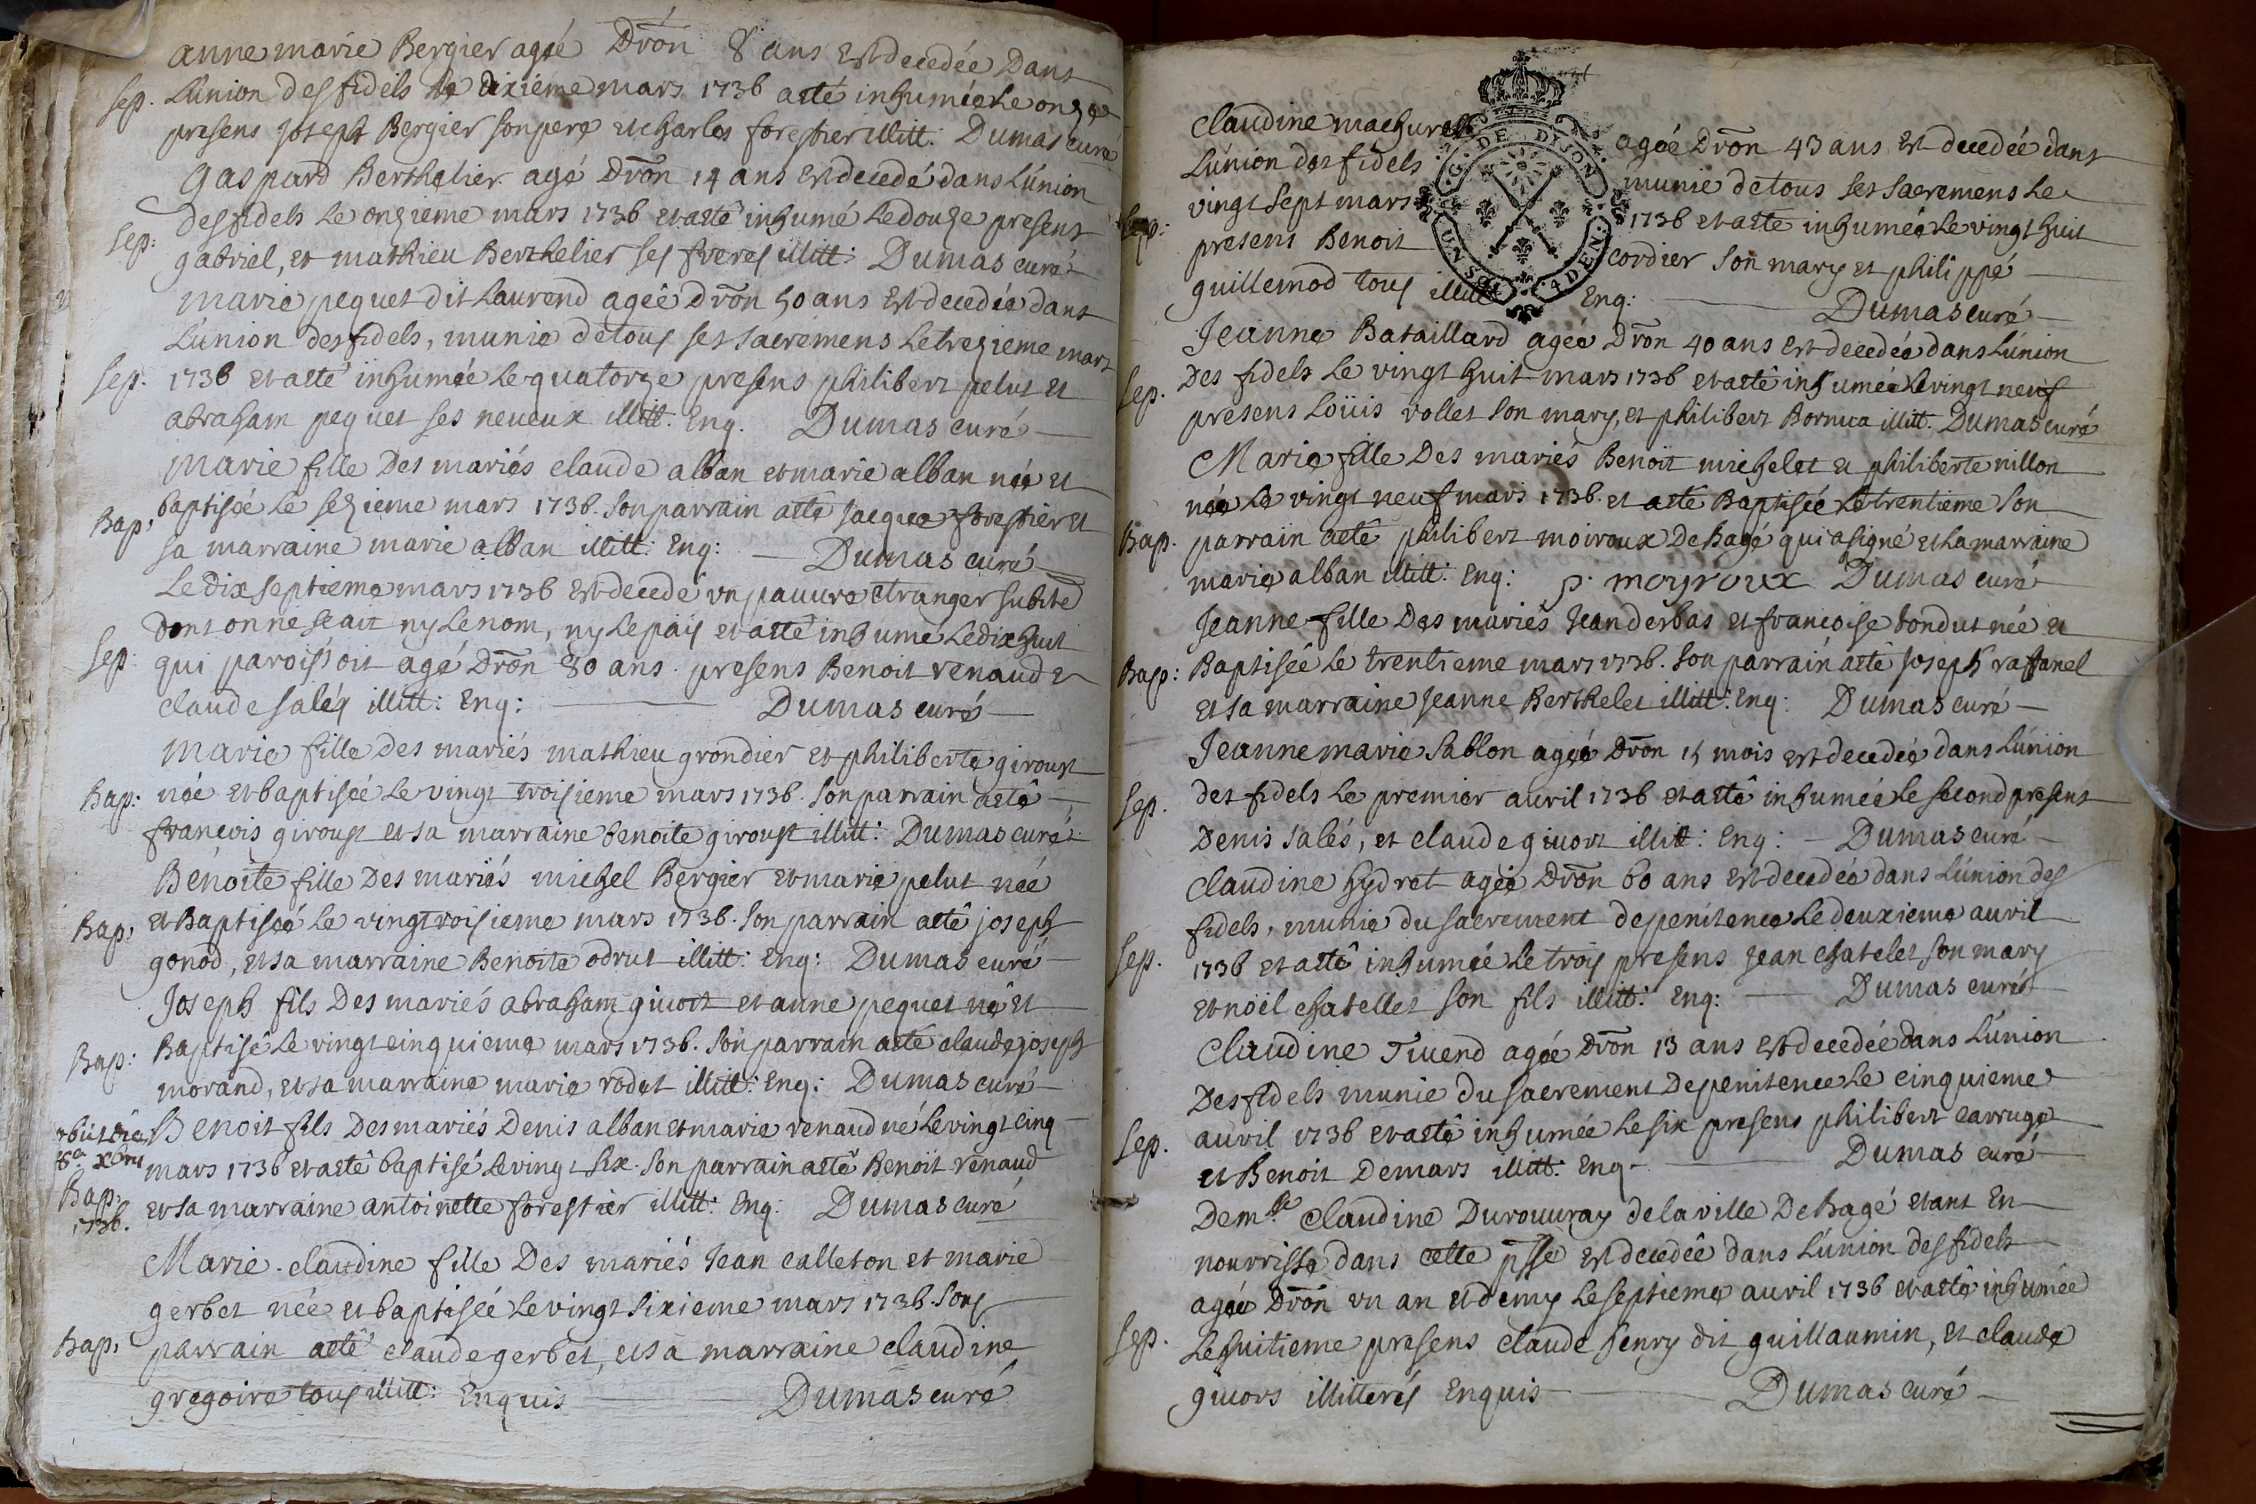 anne marie Bergier agée Dron 8 ans Est decedée Dans
sep. L'union des fidels le dixieme mars 1736 a eté inhumée le onze
presens joseph Bergier son pere et charles forestier illitt: Dumas curé
Gaspard Berthelier agé Dron 14 ans Est decedé dans L'union
des fidels Le onzieme mars 1736 et a eté inhumé Le douze presens
sep: gabriel, et mathieu Berthelier ses freres illitt: Dumas curé
marie pequet dit Laurend agée Dron 50 ans Est decedée dans
L'union des fidels, munie de tous ses sacremens Le trezieme mars
sep. 1736 et a eté inhumée Le quatorze presens philibert pelut et
abraham pequet ses neveux illitt. Enq. Dumas curé
marie fille Des mariés claude alban et marie alban née et
baptisée Le sezieme mars 1736. Son parrain a eté jacque forestier et
Bap: sa marraine marie alban illitt: Enq: Dumas curé
Le dix septieme mars 1736 Est decedé un pauvre etranger subite
dont on ne sçait ny Le nom, ny Le païs et a eté inhumé Le dix huit
sep: qui paroissoit agé Dron 30 ans. presens Benoit renaud et
claude saléz illitt: Enq: Dumas curé
marie fille des mariés mathieu grondier et philiberte giroust
Bap: née et baptisée Le vingt troisieme mars 1736. Son parrain a eté
francois giroust et sa marraine benoite giroust illitt: Dumas curé
Benoite fille Des mariés michel Bergier et marie pelut née
Bap: et Baptisée Le vingt troisieme mars 1736. Son parrain a eté joseph
gonod, et sa marraine Benoite odrut illitt: Enq: Dumas curé
Joseph fils Des mariés abraham givort et anne pequet né et
Bap: Baptisé Le vingt cinquieme mars 1736. Son parrain a eté claude joseph
morand, et sa marraine marie rodet illitt: Enq: Dumas curé
obiit die Benoit fils Des mariés Denis alban et marie renaud né Le vingt cinq
8a xbris mars 1736 et a eté baptisé Le vingt six. Son parrain a eté Benoit renaud
Bap: et sa marraine antoinette forestier illitt: Enq: Dumas curé
1736.
Marie claudine fille Des mariés Jean calleton et marie
gerbet née et baptisée Le vingt sixieme mars 1736. Son
Bap: parrain a eté claude gerbet, et sa marraine claudine
gregoire tous illitt: Enquis Dumas curé
G. DE DIJON
UN SOL 4 DEN.
claudine machuret agée Dron 43 ans Est decedée dans
L'union des fidels munie de tous ses sacremens Le
sep: vingt sept mars 1736 et a eté inhumée Le vingt huit
presens Benoit cordier son mary et philippe
guillemod tous illitt: Enq: Dumas curé
Jeanne Bataillard agée Dron 40 ans Est decedée dans L'union
sep. Des fidels Le vingt huit mars 1736 et a eté inhumée Le vingt neuf
presens Loüis vollet son mary, et philibert Bornua illitt. Dumas curé
Marie fille Des mariés Benoit michelet et philiberte nillon
née Le vingt neuf mars 1736. et a eté Baptisée Le trentieme Son
Bap. parrain a eté philibert moiroux De Bagé qui a signé et La marraine
marie alban illitt: Enq: p. moyroux Dumas curé
Jeanne fille Des mariés Jean derbas et francoise tondut née et
Bap: Baptisée Le trentieme mars 1736. Son parrain a eté joseph raffanel
et sa marraine jeanne Berthelet illitt: Enq: Dumas curé
Jeanne marie sablon agée Dron 15 mois Est decedée dans L'union
sep. des fidels Le premier avril 1736 et a eté inhumée Le second presens
Denis salés, et claude givort illitt: Enq: Dumas curé
claudine hydret agée Dron 60 ans Est decedée dans L'union des
fidels, munie du sacrement de penitence Le deuxieme avril
sep. 1736 et a eté inhumée Le trois presens Jean chatelet son mary
et noël chatellet son fils illitt: Enq: Dumas curé
Claudine Tivend agée Dron 13 ans Est decedée dans L'union
Des fidels munie du sacrement De penitence Le cinquieme
sep. avril 1736 et a eté inhumée Le six presens philibert carruge
et Benoit Demars illitt: Enq. Dumas curé
Dem.lle Claudine Durouvray de la ville De Bagé etant En
nourrisse dans cette psse Est decedée dans L'union des fidels
agée Dron un an et demy Le septieme avril 1736 et a eté inhumée
sep. Le huitieme presens claude henry dit guillaumin, et claude
givors illitterés Enquis Dumas curé